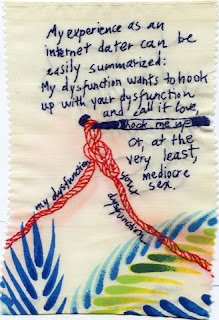 My experience as an
internet dater can be
easily summarized:
My dysfunction wants to hook
up with your dysfunction
and call it love,
hook me up
Or, at the
very least,
mediocre
sex.
my dysfunction
your dysfunction